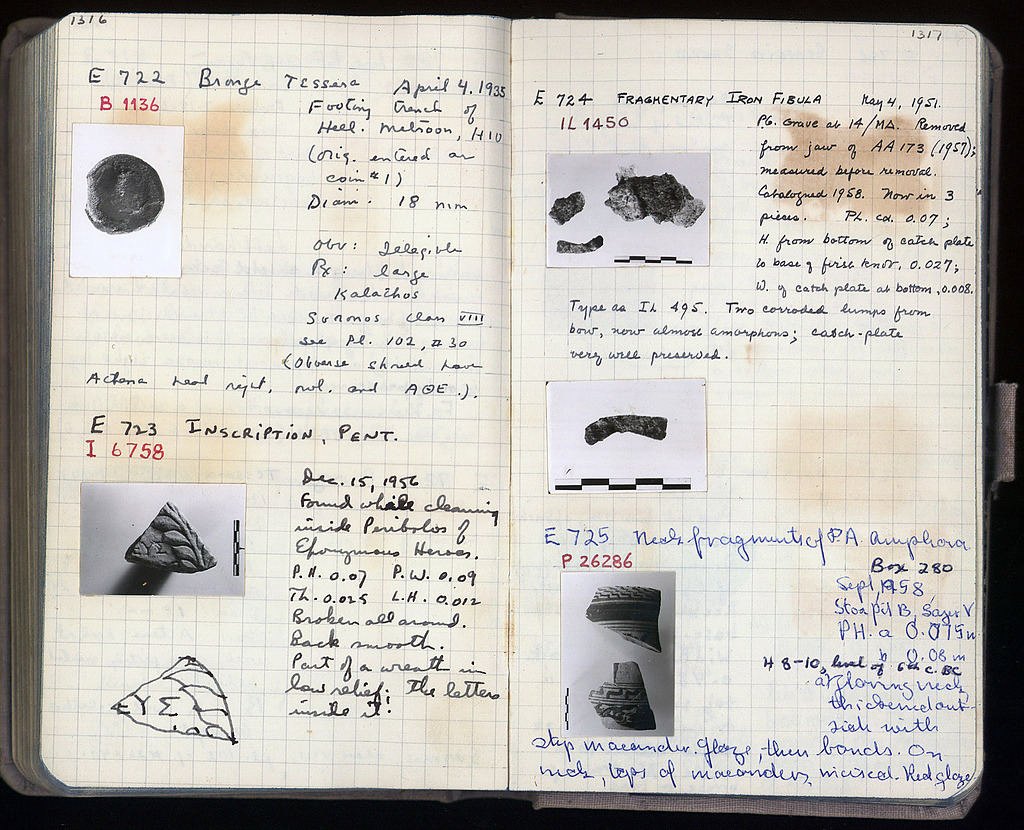 1316
E 722 Bronze Tessera April 4, 1935
B 1136
Footing trench of
Hell. Metroon, H 10
(orig. entered as
coin #1)
Diam. 18 mm
Obv: Illegible
Rx: large
Kalathos
Svoronos class VIII
see Pl. 102, #30
(Obverse should have
Athena head right, owl. and ΑΘΕ.).
E 723 INSCRIPTION, PENT.
I 6758
Dec. 15, 1956
Found while cleaning
inside Peribolos of
Eponymous Heroes.
P.H. 0.07 P.W. 0.09
Th. 0.025 L.H. 0.012
Broken all around.
Back smooth.
Part of a wreath in
low relief; the letters
inside it:
ΕΥΣ
1317
E 724 FRAGMENTARY IRON FIBULA May 4, 1951.
IL 1450
P.G. Grave at 14/ΜΔ. Removed
from jaw of AA 173 (1957);
measured before removal.
Catalogued 1958. Now in 3
pieces. P.L. ca. 0.07;
H. from bottom of catch plate
to base of first knob, 0.027;
W. of catch plate at bottom, 0.008.
Type as IL 495. Two corroded lumps from
bow, now almost amorphous; catch-plate
very well preserved.
E 725 Neck fragments of P.A. Amphora
P 26286
Box 280
Sept. 1958
Stoa Pit B, Layer V
PH. a 0.075 m
b 0.08 m
48-10, level of 6th c. BC
a) flaring neck,
thickened out-
side with
step maeander. Glaze, then bands. On
neck, tops of maeanders, incised. Red glaze